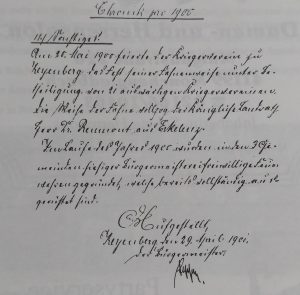 Chronik pro 1900
11) Sonstiges.
Am 20. Mai 1900 feierte der Kriegerverein zu
Keyenberg das Fest seiner Fahnenweihe unter Be-
theiligung von 21 auswärtigen Kriegervereinen.
Die Weihe der Fahne vollzog der Königliche Landrath
Herr Dr. Reumont aus Erkelenz.
Im Laufe des Jahres 1900 wurden in den 3 Ge-
meinden hiesiger Bürgermeisterei freiwillige Feuer-
wehren gegründet, welche bereits vollständig aus-
gerüstet sind.
Aufgestellt,
Keyenberg den 29. April 1901.
Der Bürgermeister.